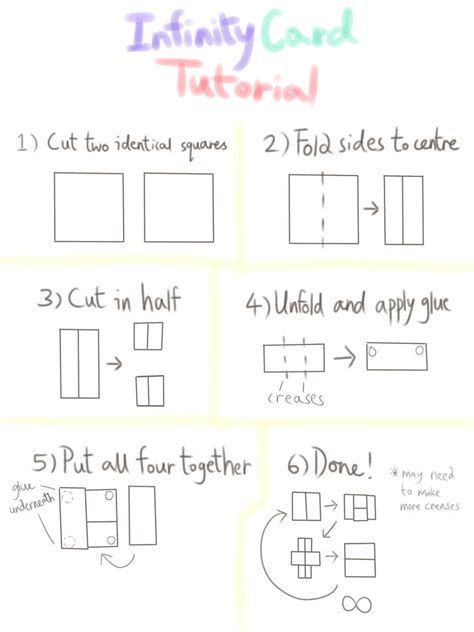 Infinity Card
Tutorial
1) Cut two identical squares
2) Fold sides to centre
3) Cut in half
4) Unfold and apply glue
creases
5) Put all four together
glue
underneath
6) Done!
*may need
to make
more creases
∞